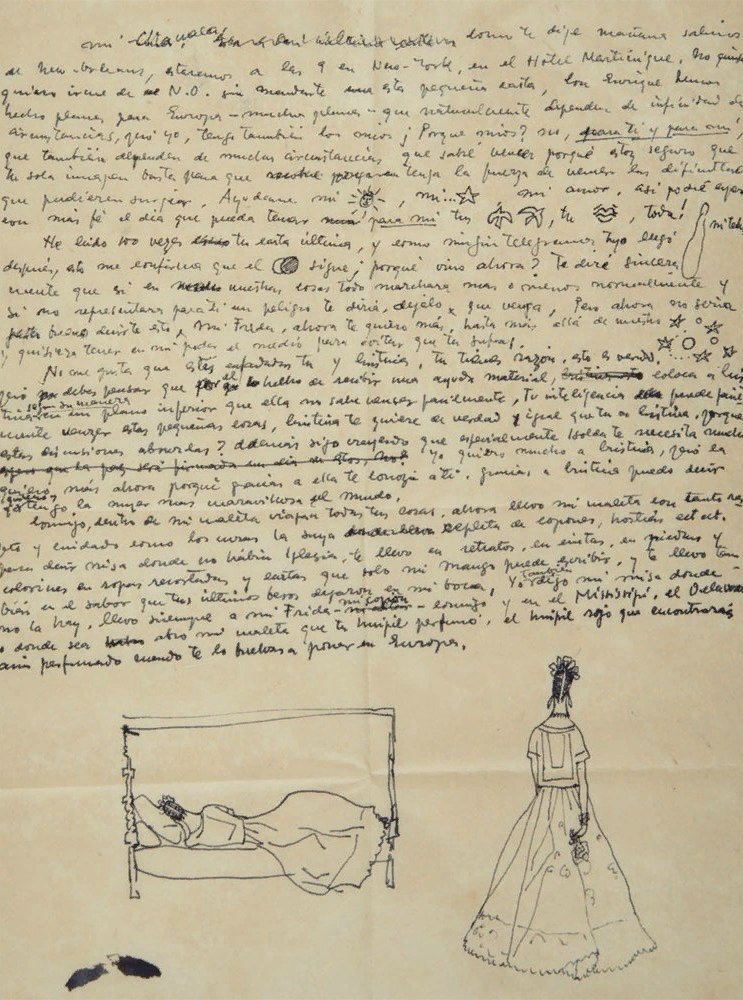 mi Chiquita, como te dije mañana salimos
de New-Orleans, estaremos a las 9 en New-York, en el Hotel Martinique. No
quiero irme de N.O. sin mandarte una esta pequeña carta, con Enrique hemos
hecho planes para Europa – muchos planes – que naturalmente dependen de infinidad de
circunstancias, pero yo, tengo también los míos ¡ Porque míos? no, para ti y para mi,
que también dependen de muchas circunstancias que sabré vencer porqué estoy seguro que
tu sola imagen basta para que tenga la fuerza de vencer las dificultades
que pudieran surgir. Ayudame mi , mi... mi amor, así podré
con más fé el dia que pueda tener para mi tus , tu , toda!
He leido 100 veces tu carta última, y como ningún telegrama tuyo llegó mi
después, esto me confirma que el sigue, porqué vino ahora? Te diré sincera
mente que si en nuestras cosas todo marchara mas o menos normalmente y
si no representara para ti un peligro te diria, dejalo, que venga, Pero ahora no seria
bueno decirte esto, mi Frida, ahora te quiero más, hasta más allá de nuestro
y quisiera tener en mi poder el medio para evitar que tu sufras.
No me gusta que estés enfadadas tu y Cristina, tu tienes razón, esto es verdad,
pero no debes pensar que el hecho de recibir una ayuda material, coloca a Cris
tina de ninguna manera en un plano inferior que ella no sabe vencer facilmente, tu inteligencia puede facil
mente vencer estas pequeñas cosas, Cristina te quiere de verdad y igual que tu a Cristina, porque
estas discusiones absurdas? además sigo creyendo que especialmente Isolda te necesita mucho
Yo quiero mucho a Cristina, pero la
quiero más ahora porqué gracias a ella te conocí a ti. gracias a Cristina puedo decir
tengo, la mujer mas maravillosa del mundo.
Conmigo, dentro de mi maleta viajan todas tus cosas, ahora llevo mi maleta con tanto res
peto y cuidado como los curas la suya repleta de copones, hostias ect. ect.
para decir misa donde no habia Iglesia, te llevo en retratos, en cintas, en piedras y
colorines en ropas recortadas y cartas que solo mi mango puede escribir, y te llevo tam
bién en el sabor que tus últimos besos dejaron en mi boca, Yo también digo mi misa donde
no la hay, llevo siempre a mi Frida – mi copón – conmigo y en el Mississipi, el Delaware
o donde sea abro mi maleta que tu huipil perfumó, el huipil rojo que encontrarás
aún perfumado cuando te lo vuelvas a poner en Europa.